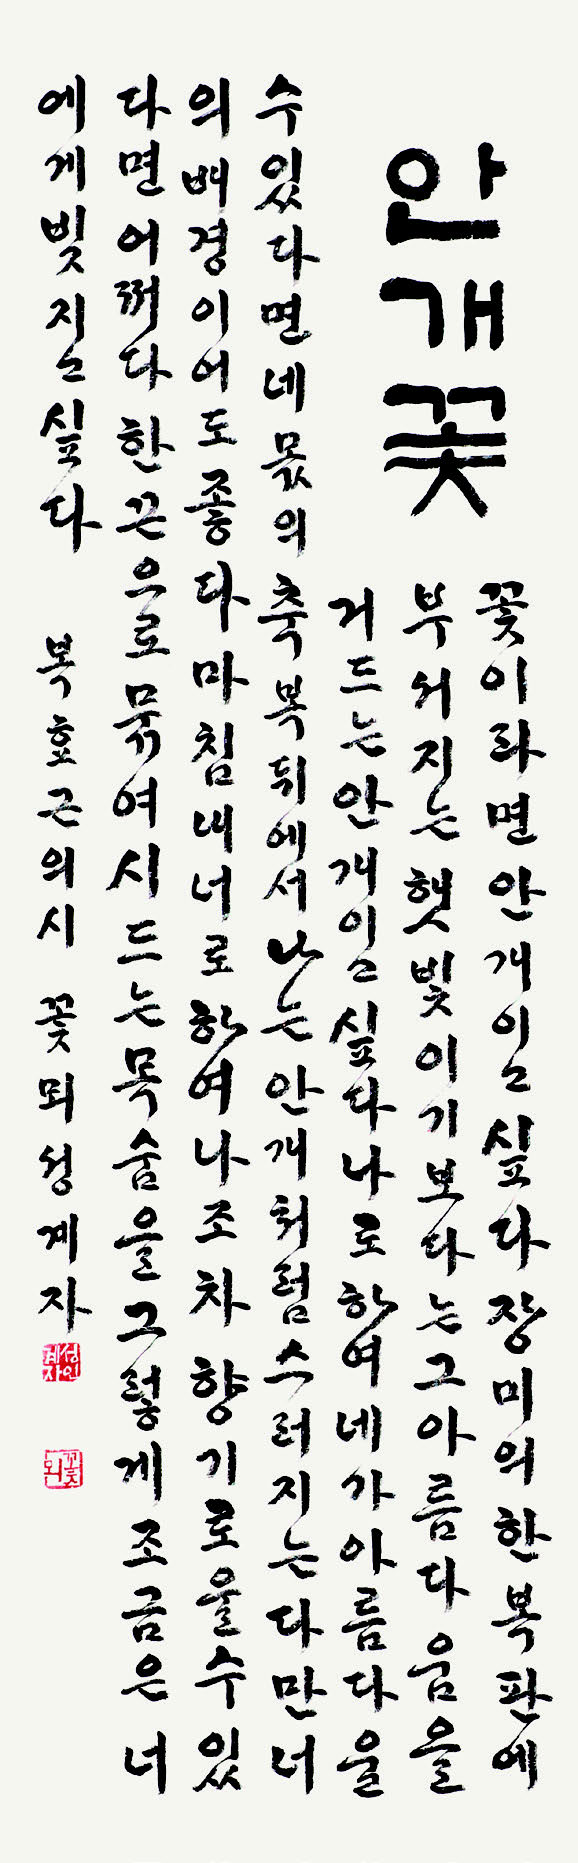 안개꽃
꽃이라면안개이고싶다장미의한복판에
부서지는햇빛이기보다는그아름다움을
거드는안개이고싶다나로하여네가아름다울
수있다면네몫의축복뒤에서나는안개처럼스러지는다만너
의배경이어도좋다마침내너로하여나조차향기로울수있
다면어쩌다한끈으로묶여시드는목숨을그렇게조금은너
에게빚지고싶다 복효근의시 꽃뫼성계자
꽃뫼